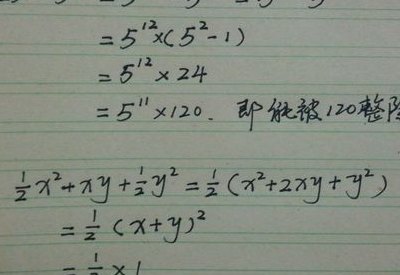 = 5¹²×(5²-1)
= 5¹² × 24
= 5¹¹ × 120. 即能被120整除
½x²+xy+½y² = ½(x²+2xy+y²)
= ½(x+y)²
= ½×1